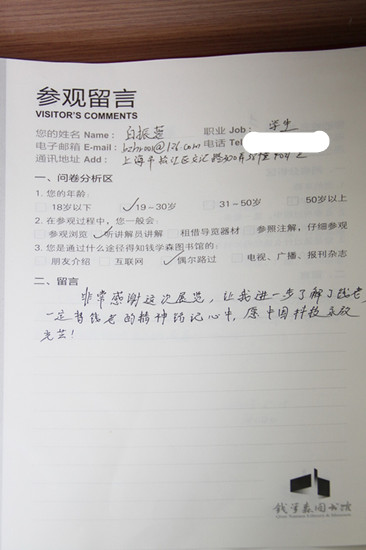 参观留言
VISITOR'S COMMENTS
您的姓名 Name： 白振 职业 Job： 学生
电子邮箱 E-mail： @126.com 电话 Tel
通讯地址 Add： 上海市徐汇区文汇路300弄
一、问卷分析区
1. 您的年龄：
18岁以下 ✓19－30岁 31－50岁 50岁以上
2. 在参观过程中，您一般会：
参观浏览 ✓听讲解员讲解 租借导览器材 参照注解，仔细参观
3. 您是通过什么途径得知钱学森图书馆的：
朋友介绍 互联网 ✓偶尔路过 电视、广播、报刊杂志
二、留言
非常感谢这次展览，让我进一步了解了钱老，
一定将钱老的精神铭记心中，愿中国科技
光芒！
钱学森图书馆